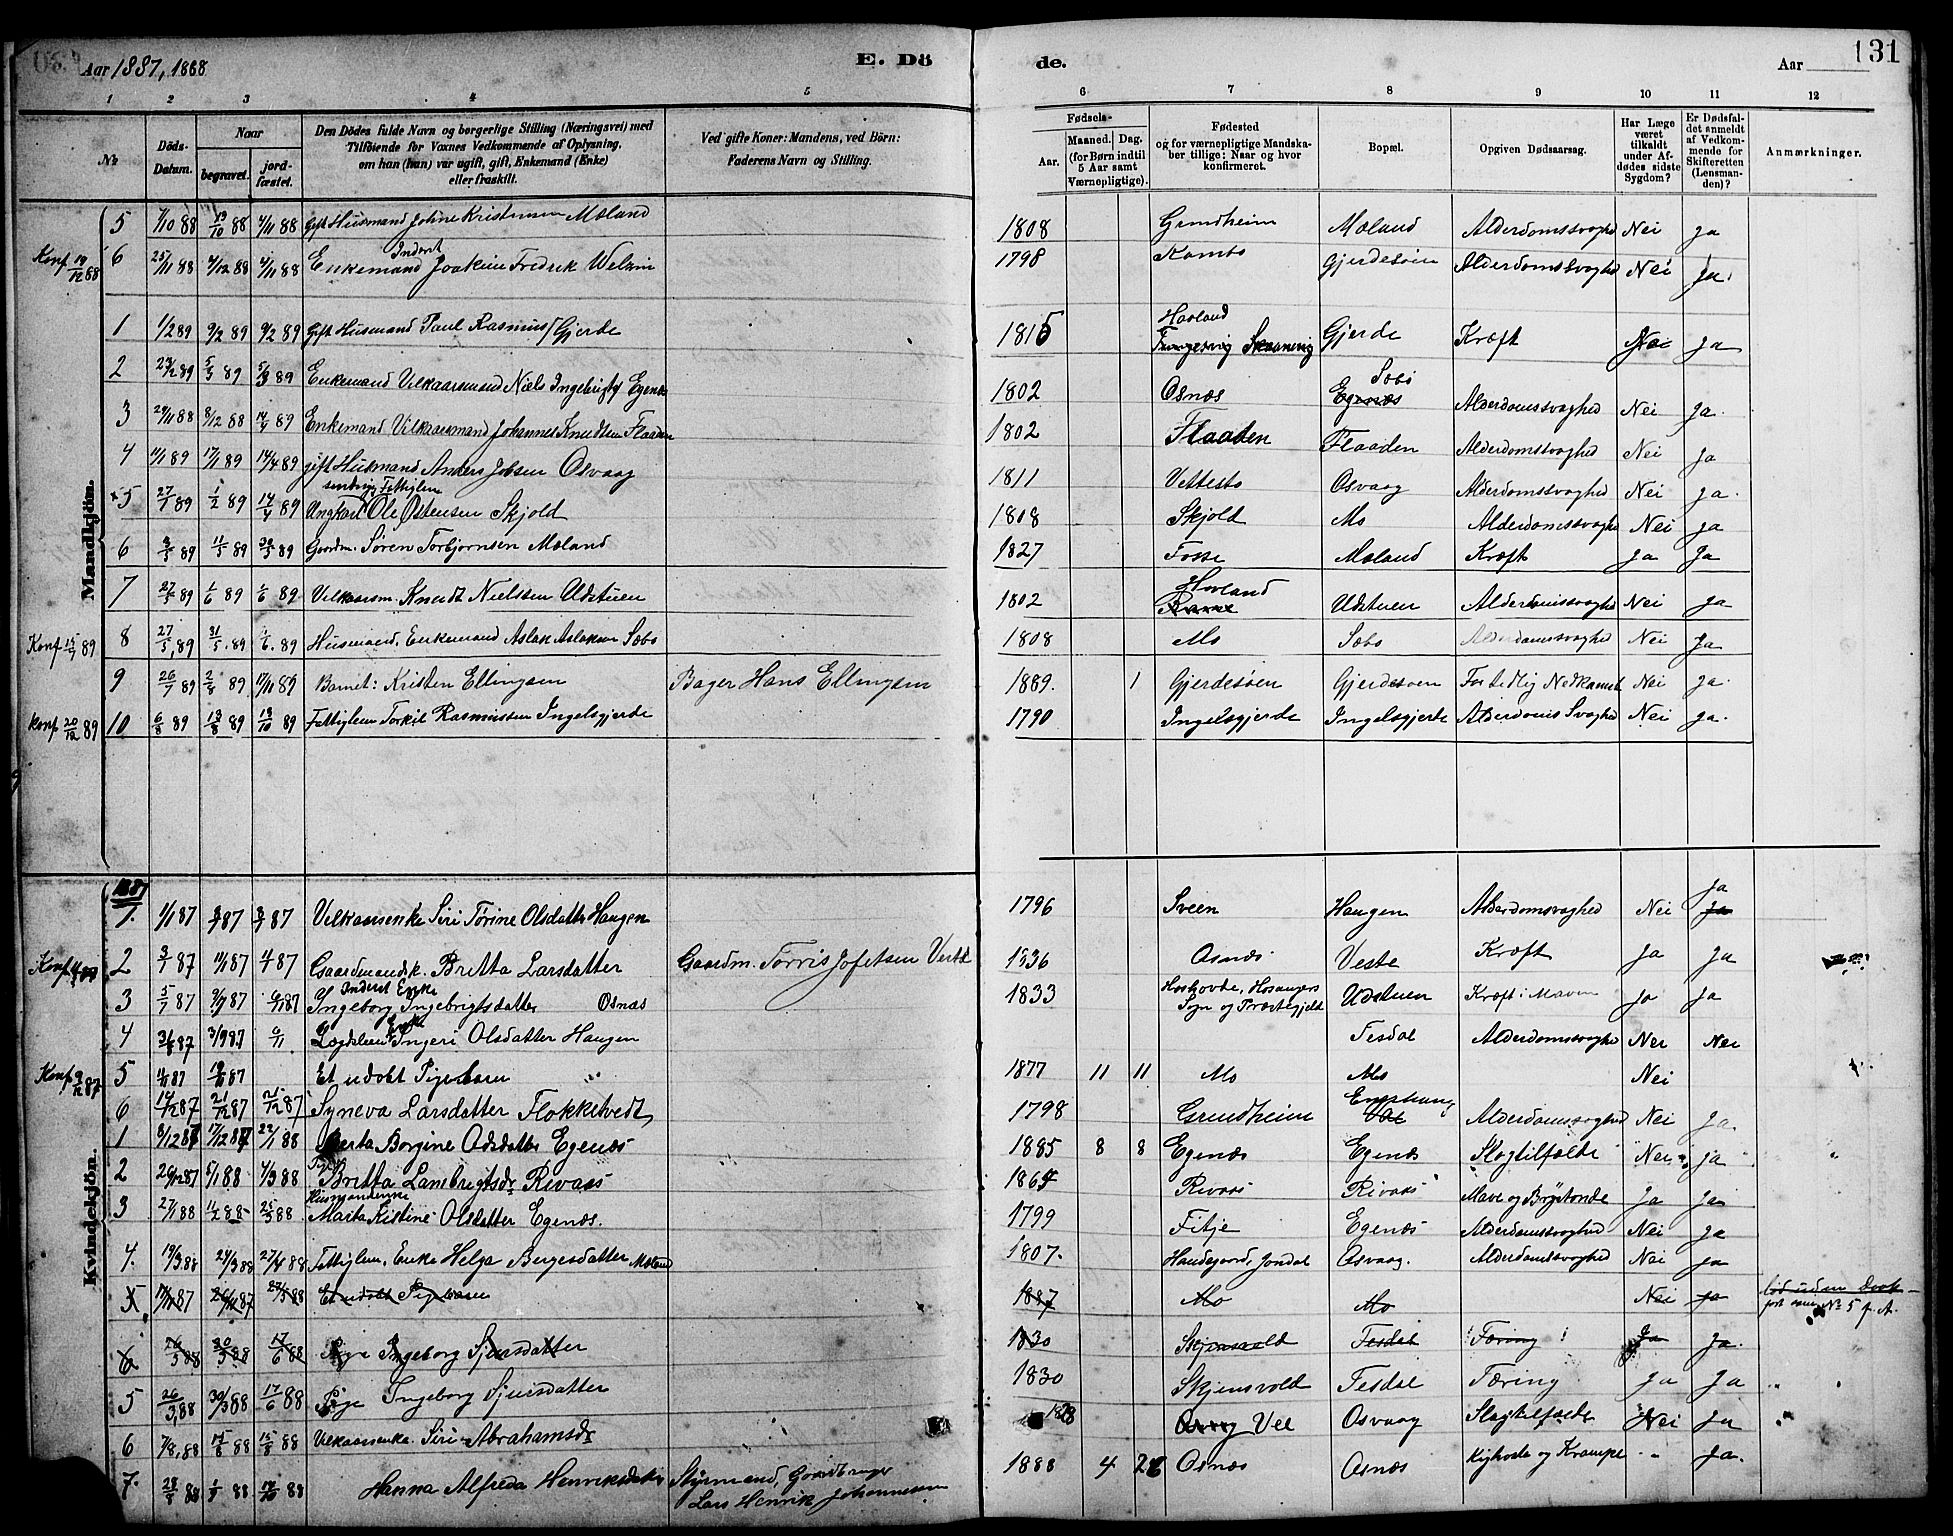 Aar 1887, 1888
E. Dö
de.
Aar
131
1 2 3 4 5 6 7 8 9 10 11 12
No
Döds-Datum.
Naar
begravet.
jord-fæstet.
Den Dödes fulde Navn og borgerlige Stilling (Næringsvei) med
Tilföiende for Voxnes Vedkommende af Oplysning,
om han (hun) var ugift, gift, Enkemand (Enke)
eller fraskilt.
Ved gifte Koner: Mandens, ved Börn:
Faderens Navn og Stilling.
Fødsels-
Aar.
Maaned. Dag.
(for Børn indtil
5 Aar samt
Værnepligtige).
Fødested
og for værnepligtige Mandska-
ber tillige: Naar og hvor
konfirmeret.
Bopæl.
Opgiven Dødsaarsag.
Har Læge
været
tilkaldt
under Af-
dødes sidste
Sygdom?
Er Dødsfal-
det anmeldt
af Vedkom-
mende for
Skifteretten
(Lensman-
den)?
Anmærkninger.
Mandkjön.
5 7/10 88 19/10 88 4/11 88 Gift Husmand Johne Kristensen Moland 1808 Grindheim Moland Alderdomssvaghed Nei Ja
Konf 19/12 88 6 25/11 88 4/12 88 4/11 88 Inderst
Enkemand Joakim Fredrik Welzin 1798 Gjerdesöen Alderdomssvaghed Nei Ja.
1 1/2 89 9/2 89 9/2 89 Gift Husmand Paul Rasmus/ Gjerde 1815 Havland
Skaanevig Gjerde Kræft Nei Ja
2 5/3 89 5/3 89 Enkemand Vilkaarsmand Niels Ingebrigts/ Egenæs 1802 Osnæs Søbö
Egenæs Alderdomssvaghed Nei Ja.
3 29/11 88 8/12 88 14/4 89 Enkemand Vilkaarsmand Johannes Knudtsen Flaaden 1802 Flaaten Flaaden Alderdomssvaghed Nei Ja
4 11/1 89 17/1 89 14/4 89 gift Husmand Anders Jobsen Osvaag 1811 Vettestø Osvaag Alderdomssvaghed Nei Ja.
5 27/7 89 1/2 89 14/4 89 Fattiglem
Ungkarl Ole Østensen Skjold 1808 Skjold Mo Alderdomssvaghed Nei Ja
6 3/5 89 11/5 89 30/5 89 Gaardm. Søren Torbjørnsen Moland 1827 Fosse Moland Kræft Ja Ja
7 27/5 89 1/6 89 1/6 89 Vilkaarsm. Knudt Nielsen Udstuen 1802 Hovland
Udstuen Alderdomssvaghed Nei Ja
Konf 15/7 89 8 27/5 89 31/5 89 1/6 89 Husmand. Enkemand Aslak Aslaksen Søbø 1808 Mo Søbø Alderdomssvaghed Nei Ja
9 26/7 89 2/8 89 17/11 89 Barnet: Kristen Ellingsen Bager Hans Ellingsen 1889. 1 Gjerdesøen Gjerdesøen For tidlig Nedkomst Nei Ja.
Konf 20/12 89 10 6/8 89 13/8 89 13/10 89 Fattiglem Torkil Rasmussen Ingelsgjerde 1790 Ingelsgjerde Ingelsgjerde Alderdoms Svaghed Nei Ja.
Kvindekjön.
1887
1. 1/1 87 87 87 Vilkaarsenke Siri Tørine Olsdatter Haugen 1796 Sveen Haugen Alderdomsvaghed Nei Ja
Ja
Konf 2 3/7 87 11/1 87 4/ 87 Gaardmandsk. Britta Larsdatter Gaardm. Torris Jofetsen Veste 1836 Osnæs Veste Kræft Ja Ja
3 5/7 87 9/7 87 6/11 87 Inderst Enke
Ingeborg Ingebrigtsdatter Osnæs 1833 Hosangers
Sogn og Præstegjeld Udstuen Kræft i Maven Ja Ja
4 31/8 87 3/9 87 6/11 Enke
Lægdslem Ingeri Olsdatter Haugen Tesdal Alderdomssvaghed Nei Nei
Konf 9/12 87 5 11/11 87 19/11 87 Et udøbt Pigebarn 1877 11 11 Mo Mo Nei
6 14/12 87 21/12 87 21/12 87 Syneva Larsdatter Flokketvedt 1798 Grindheim Alderdomssvaghed Nei Ja.
1 8/12 87 17/12 87 22/1 88 Berta Borgine Odsdatter Egenæs 1885 8 8 Egenæs Egenæs Slagtilfælde Nei Ja
2 26/12 87 5/1 88 4/3 88 Pige
Britta Lambrigtsdr Rivaas 1864 Rivaas Rivaas Mave og Brystonde Ja Ja
3 27/1 88 1/2 88 25/3 88 Husmandsenke
Marta Kistine Olsdatter Egenæs. 1799 Fitje Egenæs Alderdomssvaghed Nei Ja
4. 19/3 88 24/3 88 27/4 88 Fattiglem, Enke Helga Bergesdatter Moland 1807. Handegaard, Jondal Osvaag. Alderdomssvaghed Nei Ja
5. 11/11 87 26/11 87 27/3 88 Et udøbt Pigebarn 1887 Mo Mo Nei Ja død uden Daab
ført som No 5 f. A.
6 26/3 88 30/3 88 17/6 88 Pige Ingeborg Sjursdatter 1830 Skjensvold Tesdal Tæring Ja Ja.
5 26/3 88 30/3 88 17/6 88 Pige Ingeborg Sjursdatter 1830 Skjensvold Tesdal Tæring Ja Ja
6 7/8 88 15/8 88 15/8 88 Vilkaarsenke Siri Abrahamsdr 1828 Osvaag Vee Osvaag Slagtilfælde Nei Ja
7. 28/8 88 1/9 88 14/10 88 Hanna Alfreda Henriksdatter Styrmand, Gaardbruger
Lars Henrik Johannesen 1888 4 26 Osnæs Osnæs Kighoste og Krampe " Ja.